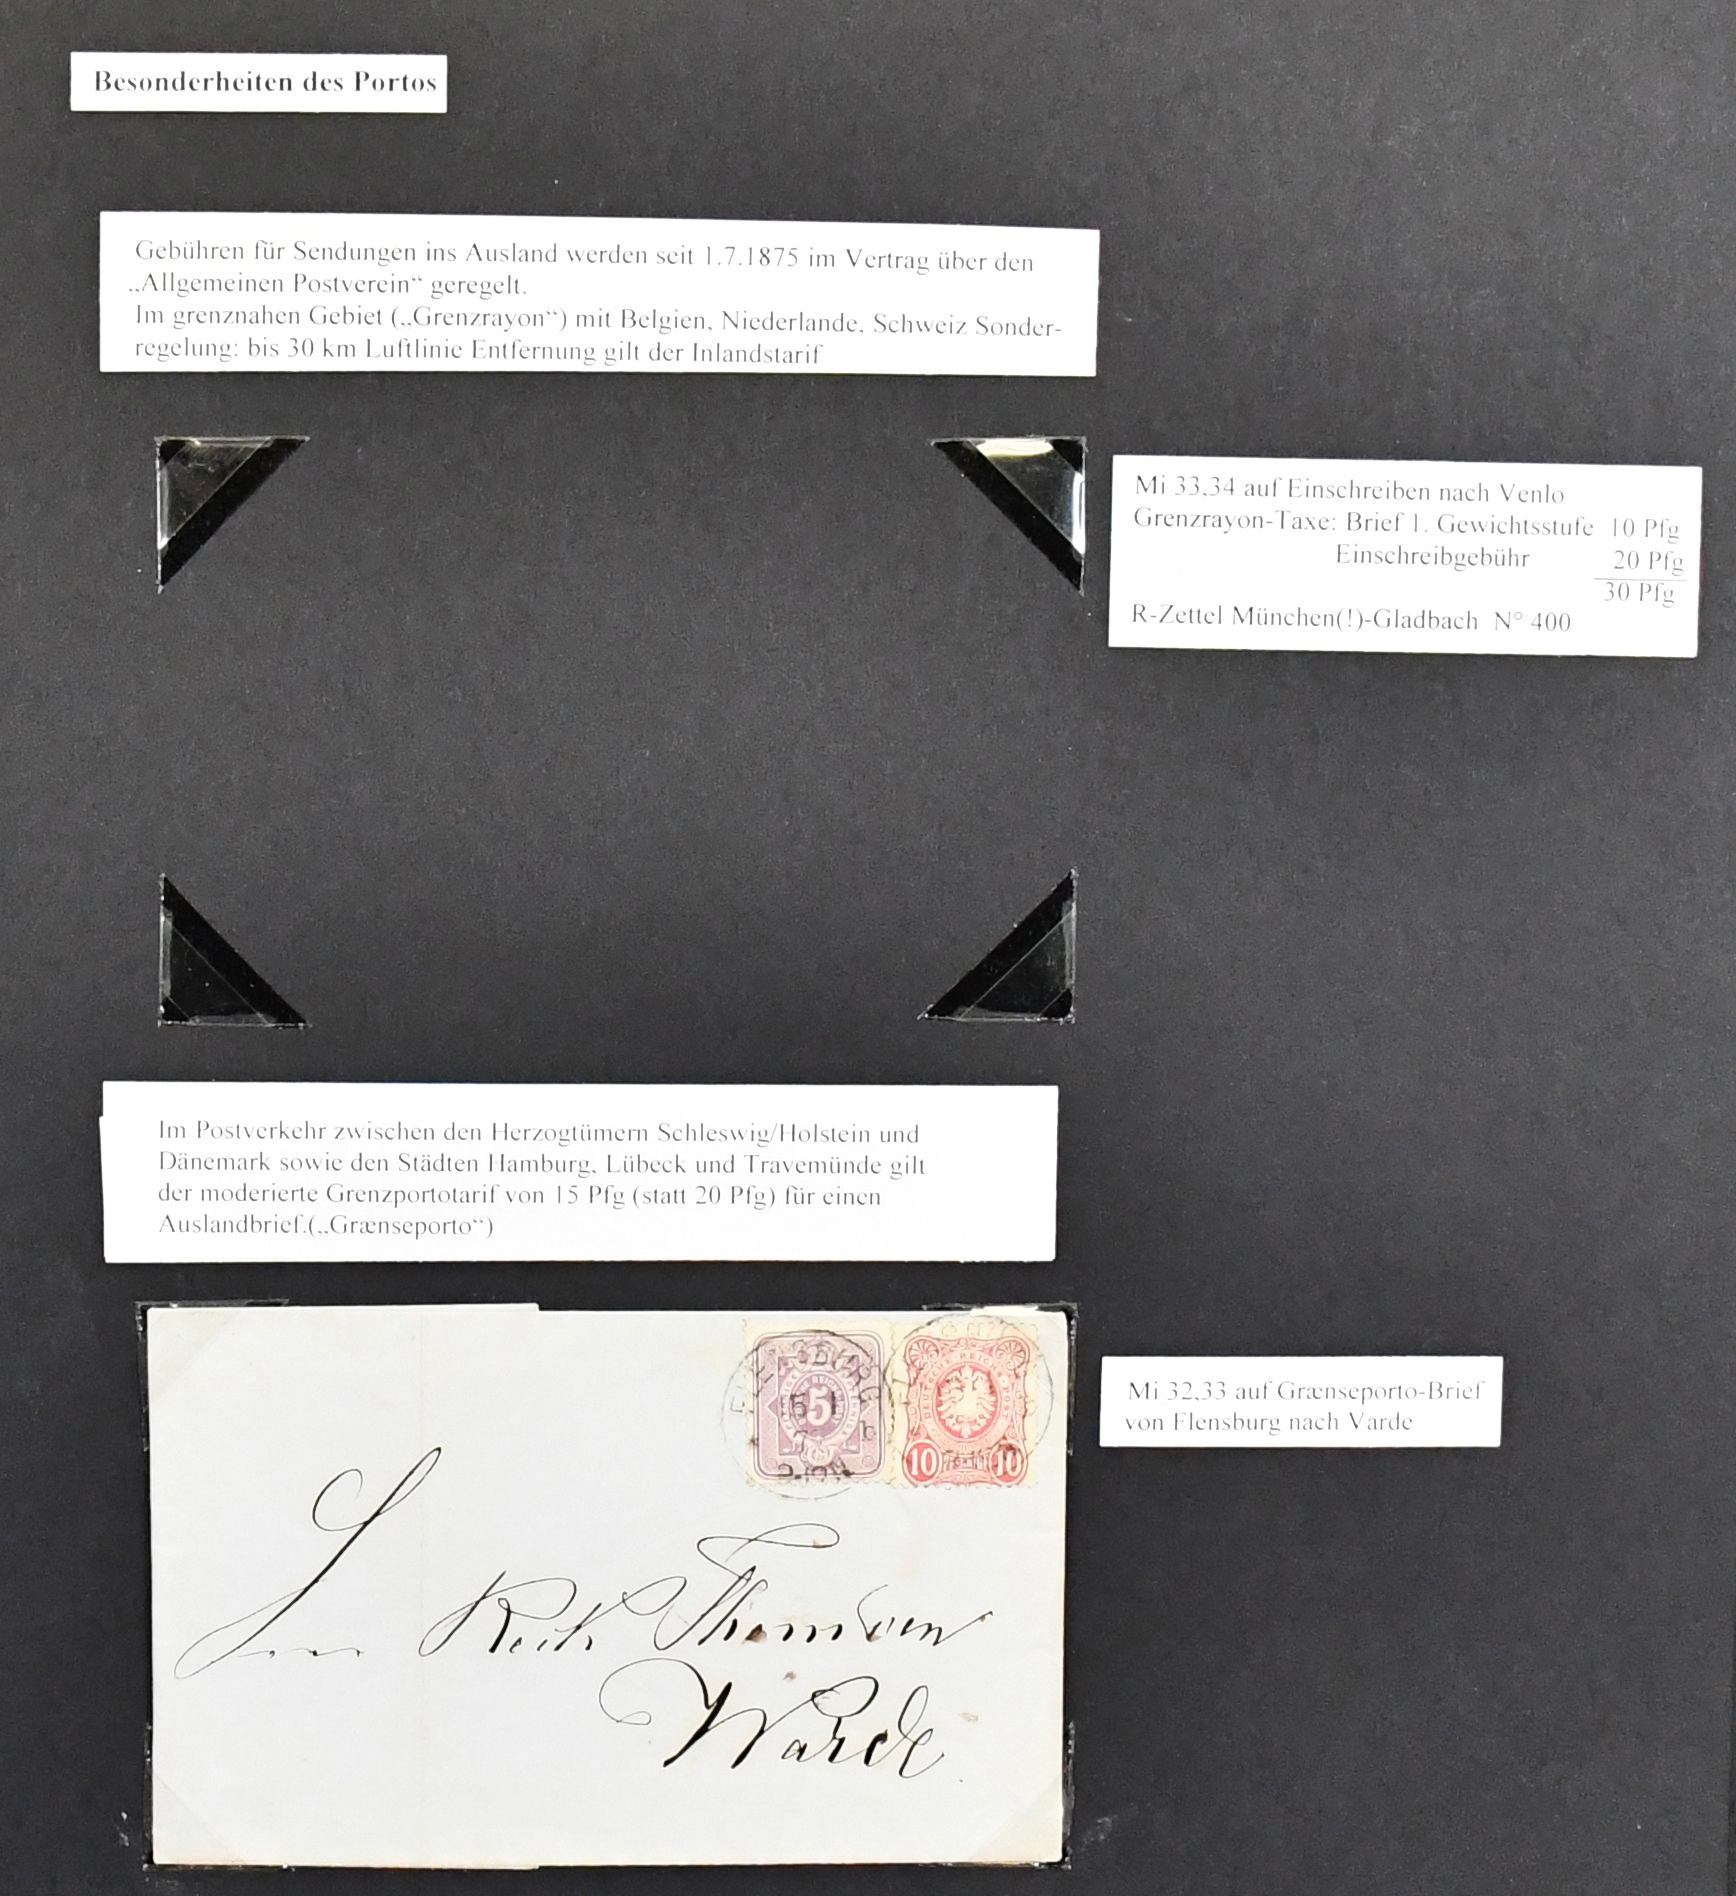 Besonderheiten des Portos
Gebühren für Sendungen ins Ausland werden seit 1.7.1875 im Vertrag über den
„Allgemeinen Postverein“ geregelt.
Im grenznahen Gebiet („Grenzrayon“) mit Belgien, Niederlande, Schweiz Sonder-
regelung: bis 30 km Luftlinie Entfernung gilt der Inlandstarif
Mi 33,34 auf Einschreiben nach Venlo
Grenzrayon-Taxe: Brief 1. Gewichtsstufe 10 Pfg
Einschreibgebühr 20 Pfg
30 Pfg
R-Zettel München(!)-Gladbach N° 400
Im Postverkehr zwischen den Herzogtümern Schleswig/Holstein und
Dänemark sowie den Städten Hamburg, Lübeck und Travemünde gilt
der moderierte Grenzportotarif von 15 Pfg (statt 20 Pfg) für einen
Auslandbrief.(„Grænseporto“)
FLENSBURG
5
DEUTSCHE REICHS-POST
10 10
Mi 32,33 auf Grænseporto-Brief
von Flensburg nach Varde
Thomsen
Warde